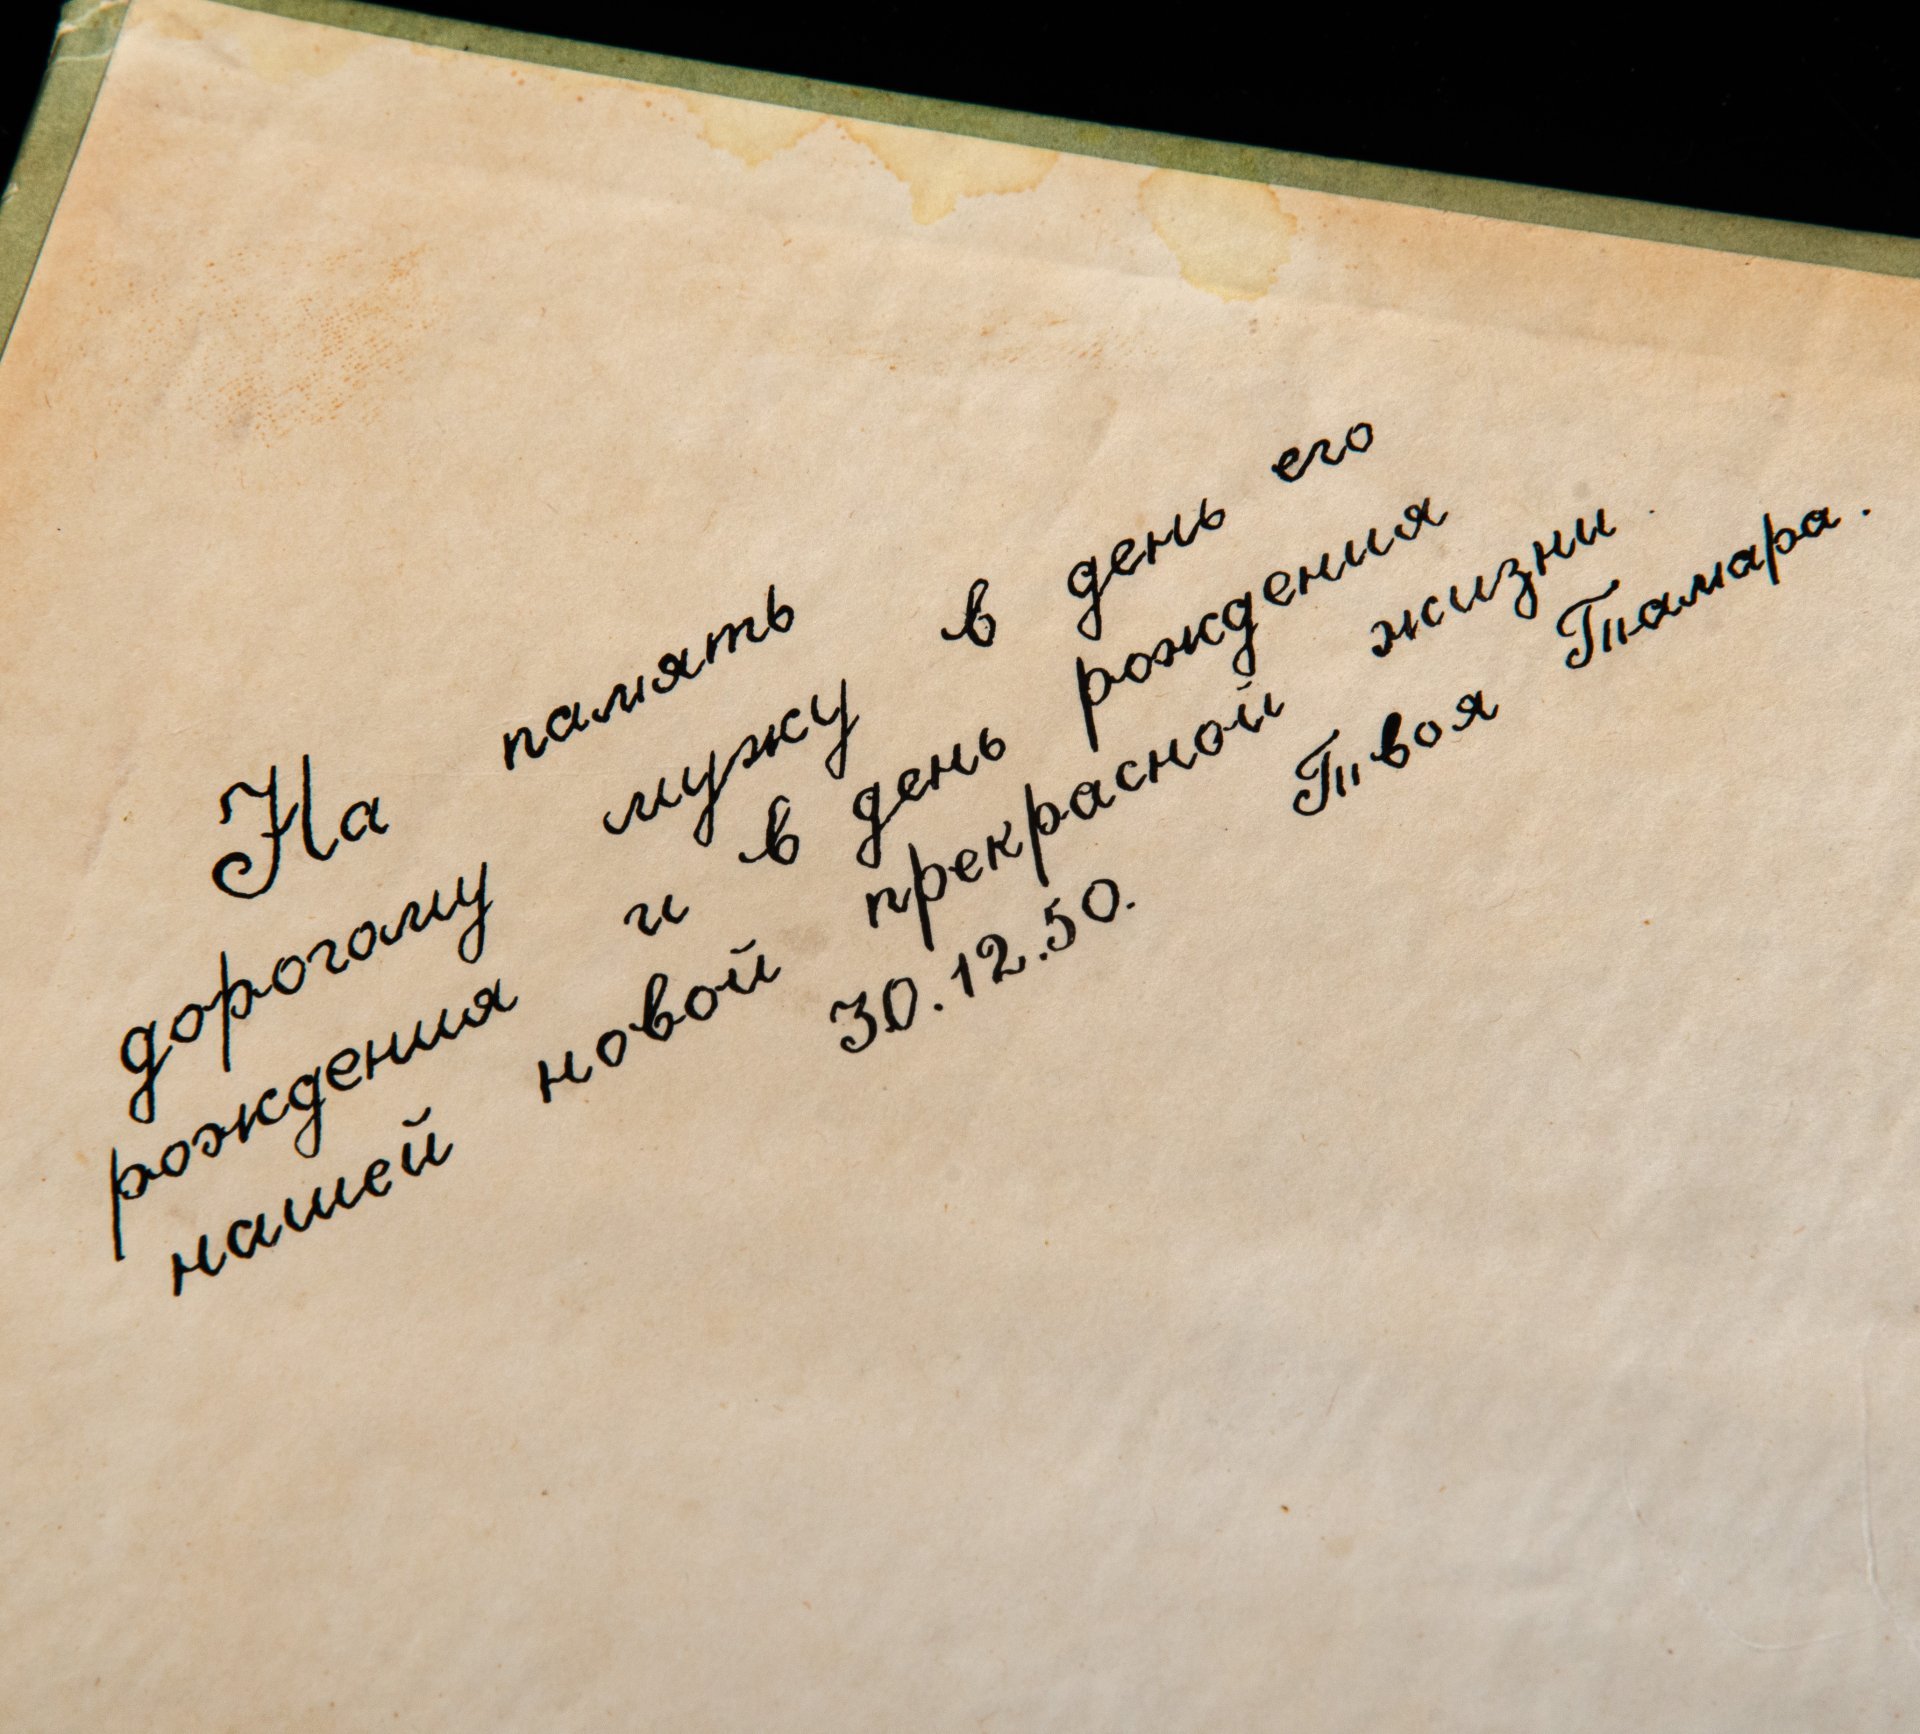 На память
дорогому мужу в день его
рождения и в день рождения
нашей новой прекрасной жизни.
30.12.50. Твоя Тамара.